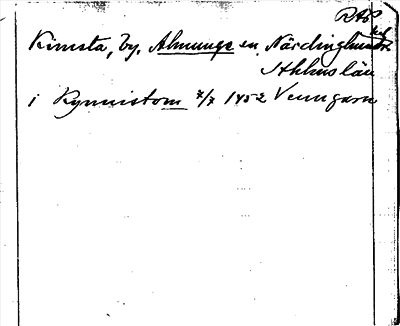 RAp
Kimsta, by, Almunge sn, Närdinghundra
Sthlms län
i Kynnistom 7/7 1452 Venngarn